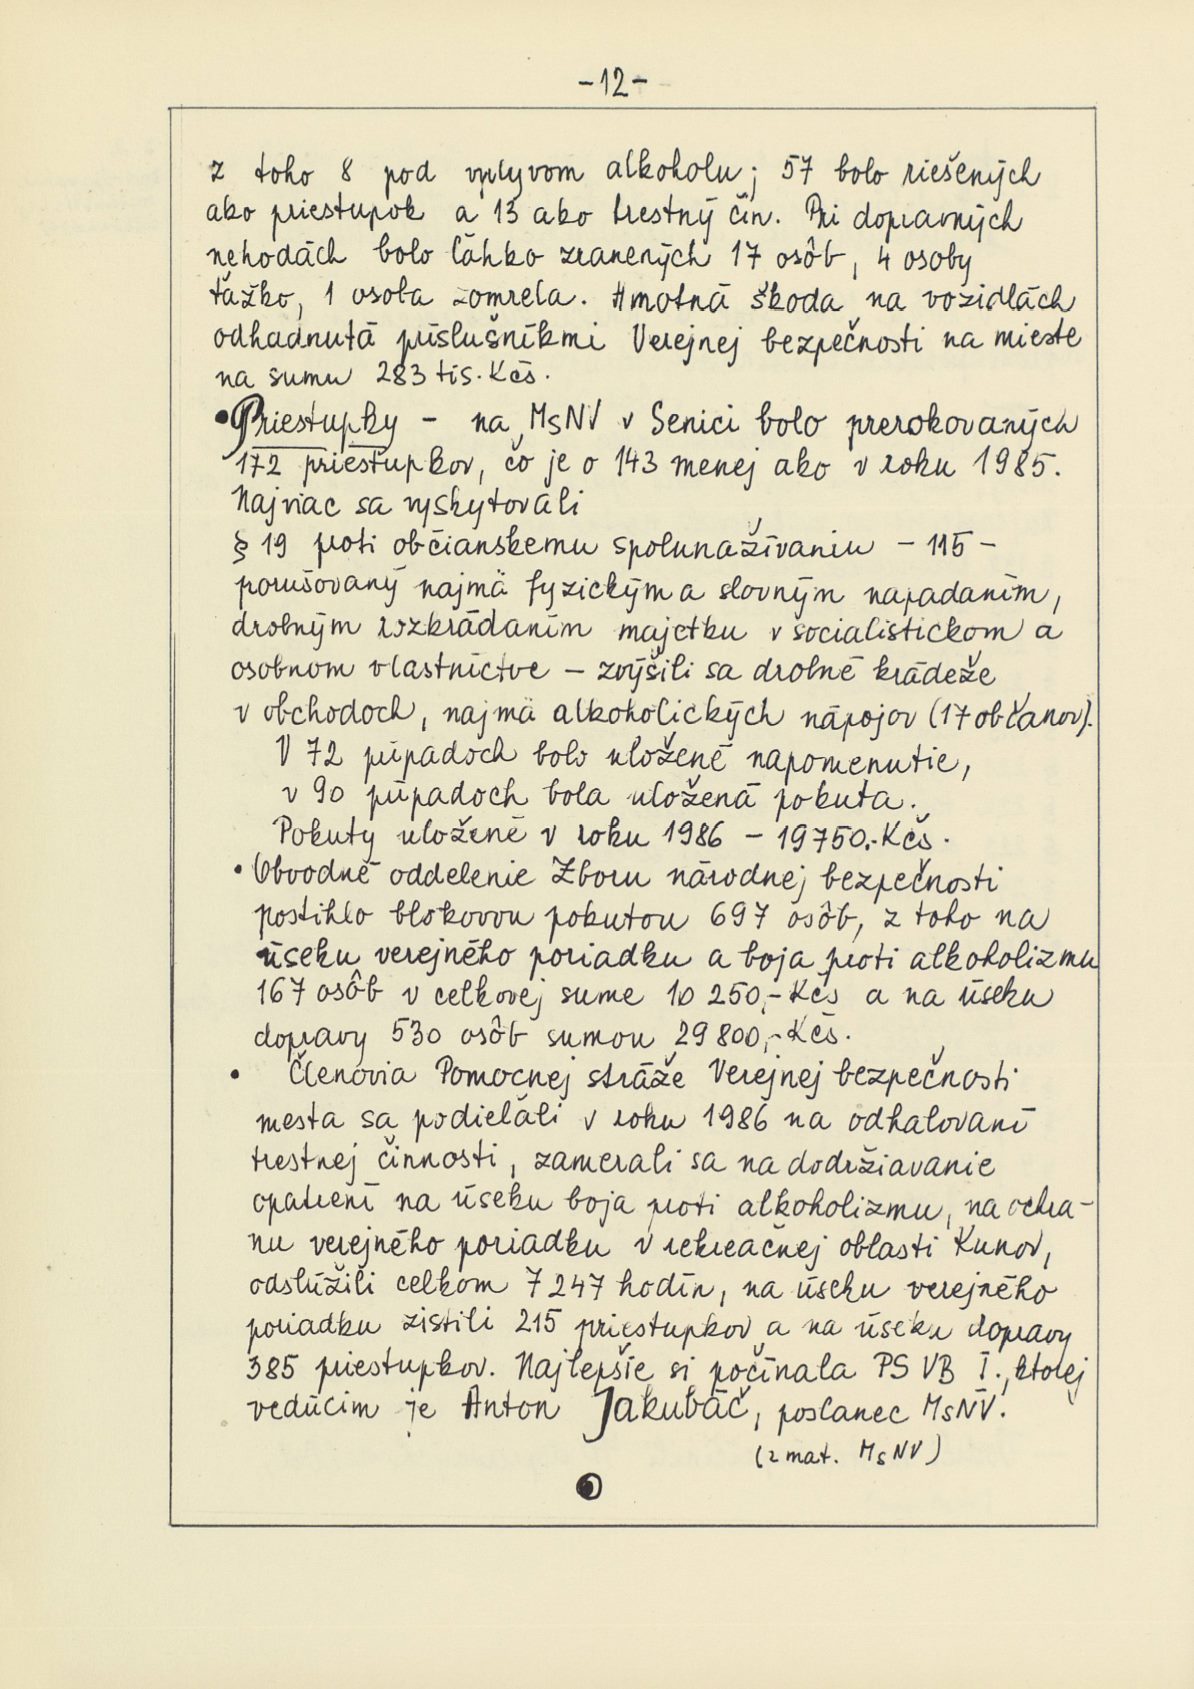 -12-
z toho 8 pod vplyvom alkoholu; 57 bolo riešených
ako priestupok a 13 ako trestný čin. Pri dopravných
nehodách bolo ľahko zranených 17 osôb, 4 osoby
ťažko, 1 osoba zomrela. Hmotná škoda na vozidlách
odhadnutá príslušníkmi Verejnej bezpečnosti na mieste
na sumu 283 tis. Kčs.
• Priestupky - na MsNV v Senici bolo prerokovaných
172 priestupkov, čo je o 143 menej ako v roku 1985.
Najviac sa vyskytovali
§ 19 proti občianskemu spolunažívaniu - 115 -
porušovaný najmä fyzickým a slovným napadaním,
drobným rozkrádaním majetku v socialistickom a
osobnom vlastníctve - zvýšili sa drobné krádeže
v obchodoch, najmä alkoholických nápojov (17 občanov).
V 72 prípadoch bolo uložené napomenutie,
v 90 prípadoch bola uložená pokuta.
Pokuty uložené v roku 1986 - 19750.- Kčs.
• Obvodné oddelenie Zboru národnej bezpečnosti
postihlo blokovou pokutou 697 osôb, z toho na
úseku verejného poriadku a boja proti alkoholizmu
167 osôb v celkovej sume 10 250,- Kčs a na úseku
dopravy 530 osôb sumou 29 800,- Kčs.
• Členovia Pomocnej stráže Verejnej bezpečnosti
mesta sa podieľali v roku 1986 na odhaľovaní
trestnej činnosti, zamerali sa na dodržiavanie
opatrení na úseku boja proti alkoholizmu, na ochra-
nu verejného poriadku v rekreačnej oblasti Kunov,
odslúžili celkom 7 247 hodín, na úseku verejného
poriadku zistili 215 priestupkov a na úseku dopravy
385 priestupkov. Najlepšie si počínala PS VB I., ktorej
vedúcim je Anton Jakubáč, poslanec MsNV.
(z mat. MsNV)